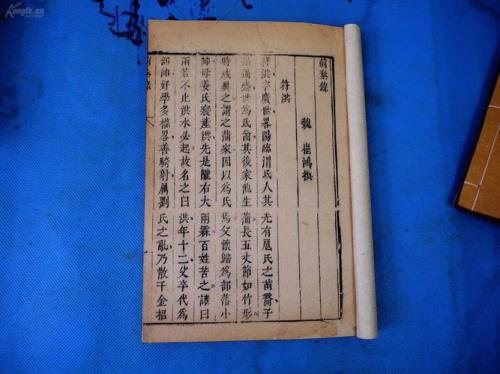 前秦錄
魏 崔鴻撰
苻洪
苻洪字廣世畧陽臨渭氐人其先有扈氏之苗裔子
孫強盛世為氐酋其後家池生蒲長五丈節如竹形
時咸異之謂之蒲家因以為氏焉父懷歸為部落小
帥母姜氏寢產洪先是隴右大雨霖百姓苦之謠曰
雨若不止洪水必起故名之曰洪年十二父卒代為
部帥好學多權畧善騎射屬劉氏之亂乃散千金招
Kongfz.cn